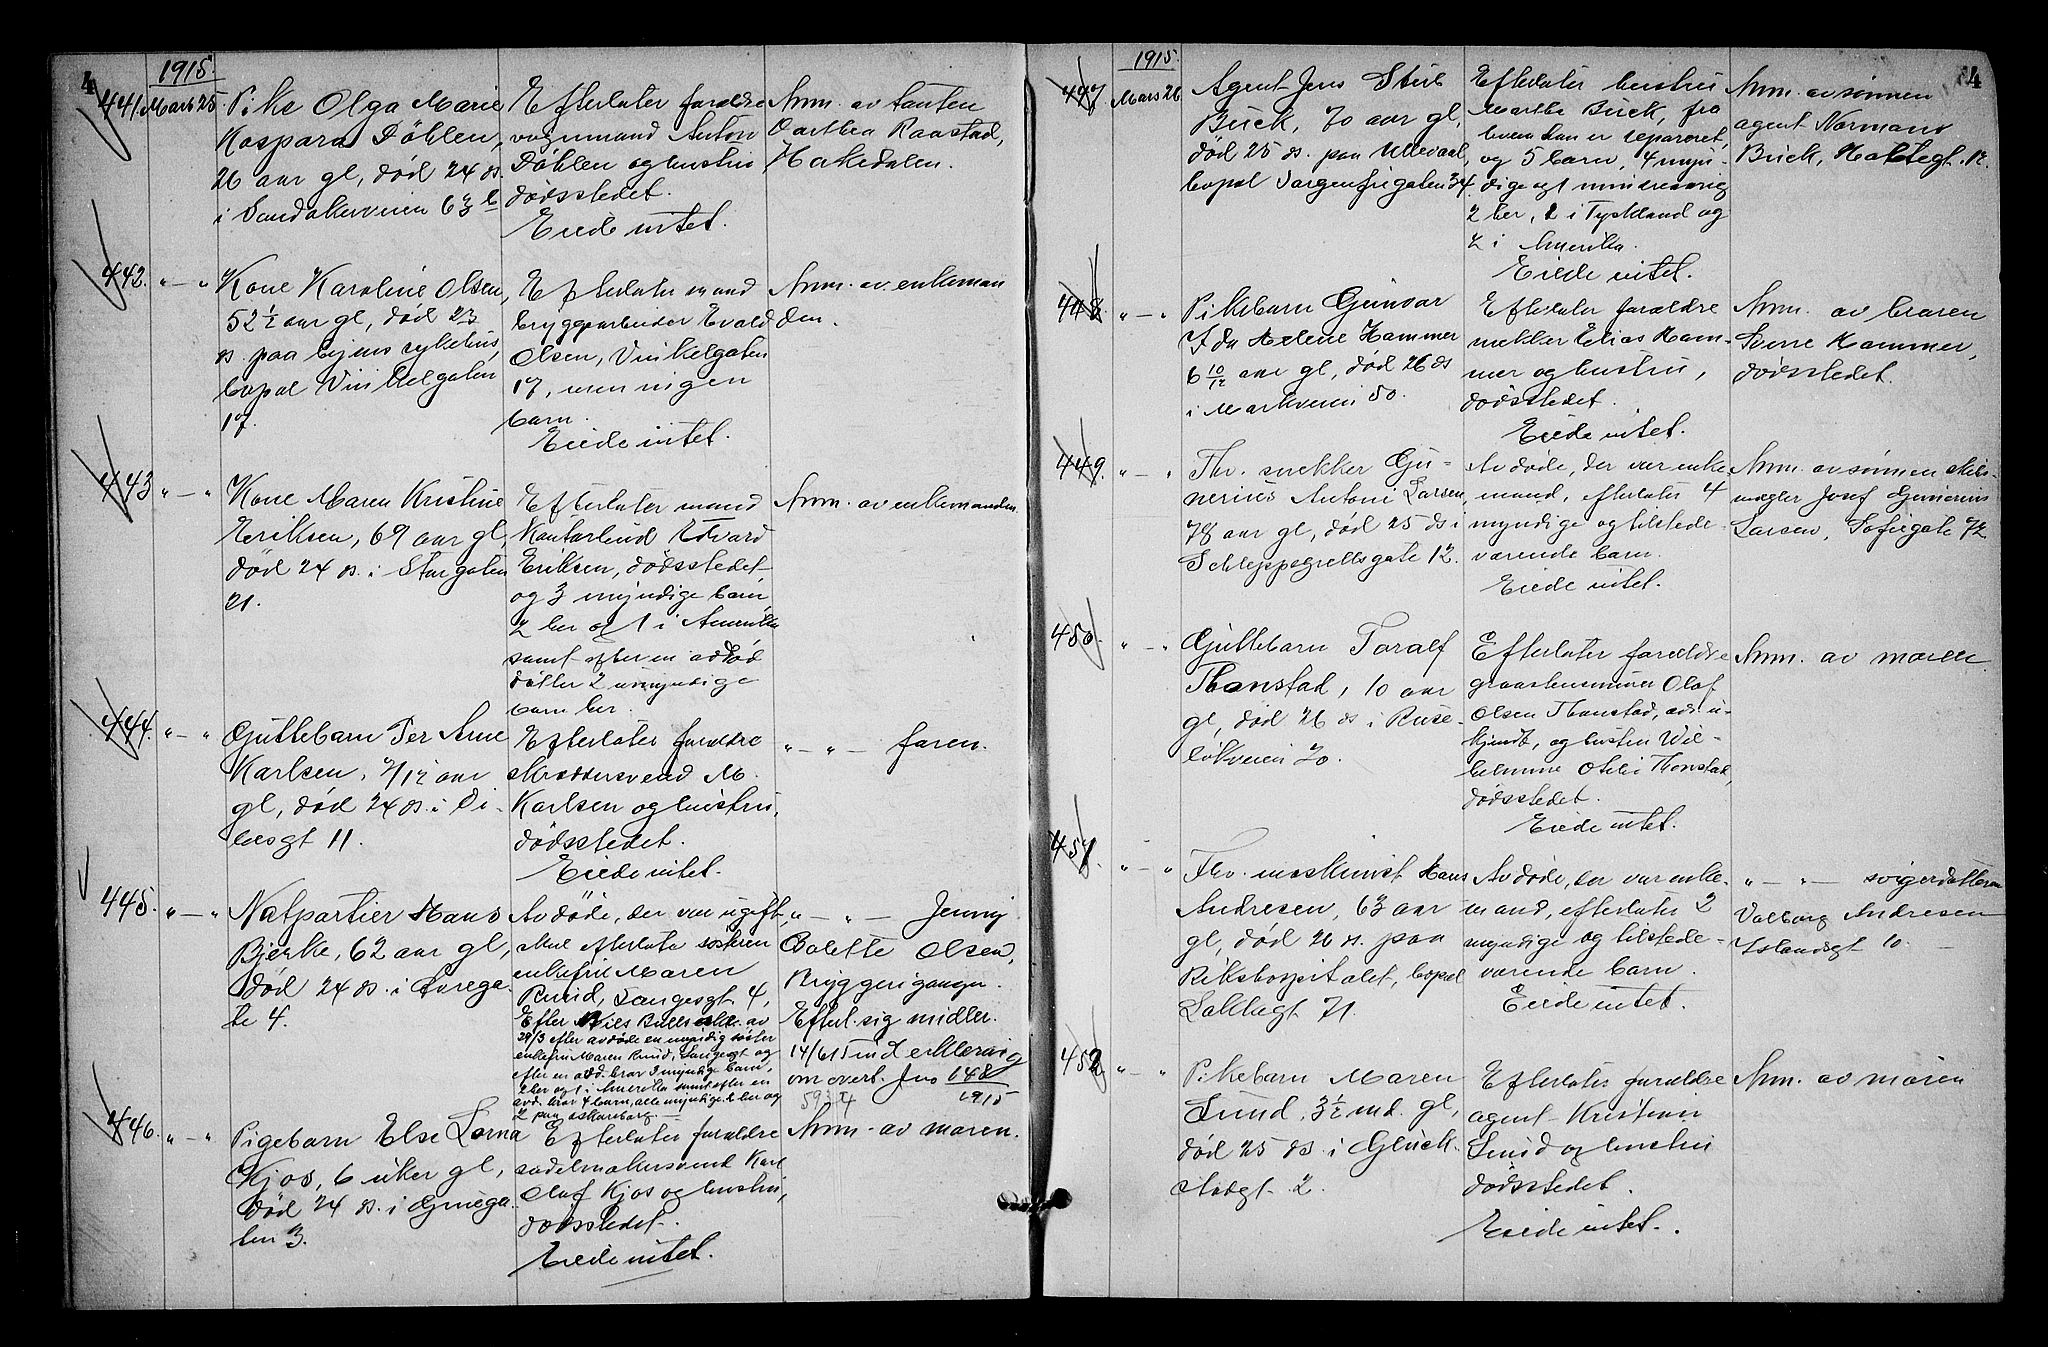 4
1915.
441. Mars 25.
Pike Olga Marie
Kaspara Döhlen,
26 aar gl, död 24 ds.
i Sandakerveien 63 b
Efterlater forældre
vognmand Anton
Döhlen og hustru
dödsstedet.
Eiede intet.
Anm. av tanten
Dorthea Raastad,
Hakedalen.
442. " — "
Kone Karoline Olsen,
52 1/2 aar gl, död 23
ds. paa byens sykehus,
bopæl Vinkelgaten
17.
Efterlater mand
bryggearbeider Evald
Olsen, Vinkelgaten
17, men ingen
barn.
Eiede intet.
Anm. av enkeman
den.
443 " — "
Kone Maren Kristine
Eriksen, 69 aar gl,
död 24 ds. i Storgaten
21.
Efterlater mand
Kontorbud Edvard
Eriksen, dödsstedet,
og 3 myndige barn
2 her og 1 i Amerika
samt efter en avdöd
datter 2 umyndige
barn her.
Anm. av enkemanden.
444. " — "
Guttebarn Per Arne
Karlsen, 2/12 aar
gl, död 24 ds. i Di-
besgt 11.
Efterlater forældre
skræddersvend M.
Karlsen og hustru,
dödsstedet.
Eiede intet.
" — " — faren.
445. " — "
Natportier Hans
Bjerke, 62 aar gl,
död 24 ds. i
te 4.
Avdöde, der var ugift,
skal efterlate sösteren
enkefru Maren
Ruud, Langesgt. 4,
Efter Nils av
29/3 efter avdöde en myndig söster
enkefru Maren Ruud, Langesgt og
efter en avd. bror 3 myndige barn,
2 her og 1 i Amerika samt efter en
avd. bror 4 barn, alle myndige. 2 her og
2 paa Skarsborg. —
" — " — Jenny
Bolette Olsen,
Bryggerigangen.
Efterl. sig midler.
14/6 15 inderklæring
om overt. Jno 148
1915
446. " — "
Pigebarn Else Lorna
Kjos, 6 uker gl,
död 24 ds. i Gröuega
ten 3.
Efterlater forældre
sadelmakersvend Karl
Olaf Kjos og hustru,
dödsstedet.
Eiede intet.
Anm. av moren.
4
1915.
447 Mars 26
Agent Jens Stub
Buck, 70 aar gl,
död 25 ds. paa Ullevaal,
bopæl Sorgenfrigaten 34.
Efterlater hustru
Marthe Buck, fra
hvem han er separeret,
og 5 barn, 4 myn-
dige og 1 mindreaarig
2 her, 1 i Tyskland og
2 i Amerika.
Eiede intet.
Anm. av sönnen
agent Normann
Buck, Holtegt. 12.
448 " — "
Pikebarn Gunvor
Ida Helene Hammer
6 10/12 aar gl, död 26 ds
i Markveien 50.
Efterlater forældre
snekker Elias Ham-
mer og hustru,
dödsstedet.
Eiede intet.
Anm. av broren
Sverre Hammer,
dödsstedet.
449. " — "
Fhv. snekker Gu-
nerius Antoni Larsen,
78 aar gl, död 25 ds i
Schleppegrellsgate 12.
Avdöde, der var enke
mand, efterlater 4
myndige og tilstede-
værende barn.
Eiede intet.
Anm. av sönnen skibs
mægler Josef Gunerius
Larsen, Sofiegate 72
450. " — "
Guttebarn Toralf
Thonstad, 10 aar
gl, död 26 ds i Ruse-
lökveien 70.
Efterlater forældre
graastensminer Olaf
Olsen Thonstad, adr. u-
kjendt, og hustru Wil-
helmine Otelie Thonstad,
dödsstedet.
Eiede intet.
Anm. av moren.
451. " — "
Fhv. maskinist Hans
Andresen, 63 aar
gl, död 26 ds. paa
Rikshospitalet, bopæl
Toftesgt 71.
Avdöde, der var enke-
mand, efterlater 2
myndige og tilstede-
værende barn.
Eiede intet.
" — " — svigerdatteren
Valborg Andresen
Islandsgt 10. —
452 " — "
Pikebarn Maren
Lund, 3 1/2 md. gl,
död 25 ds. i Glück-
stadgt. 2.
Efterlater forældre
agent Kristian
Lund og hustru
dödsstedet.
Eiede intet.
Anm. av moren